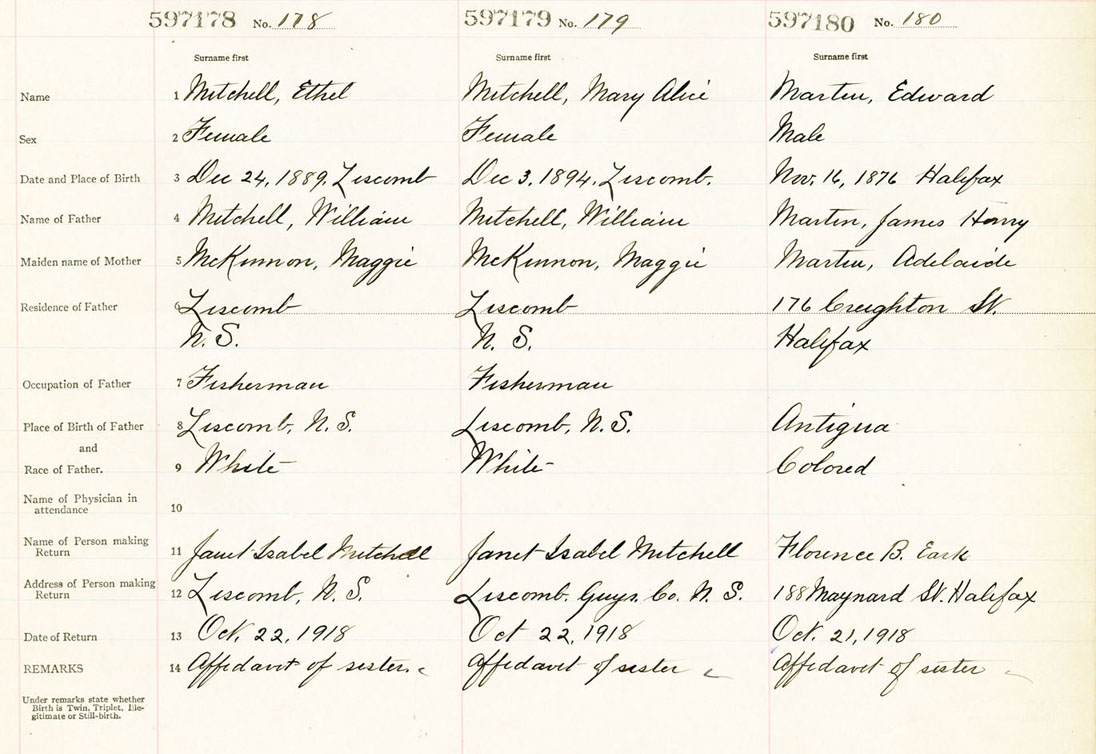 597178 No. 178 597179 No. 179 597180 No. 180
Surname first Surname first Surname first
Name 1 Mitchell, Ethel Mitchell, Mary Alice Martin, Edward
Sex 2 Female Female Male
Date and Place of Birth 3 Dec 24, 1889, Liscomb Dec 3, 1894, Liscomb. Nov. 16, 1876 Halifax
Name of Father 4 Mitchell, William Mitchell, William Martin, James Henry
Maiden name of Mother 5 McKinnon, Maggie McKinnon, Maggie Martin, Adelaide
Residence of Father 6 Liscomb Liscomb 176 Creighton St.
N. S. N. S. Halifax
Occupation of Father 7 Fisherman Fisherman
Place of Birth of Father 8 Liscomb, N. S. Liscomb, N. S. Antigua
and
Race of Father. 9 White White Colored
Name of Physician in
attendance 10
Name of Person making
Return 11 Janet Isabel Mitchell Janet Isabel Mitchell Florence B.
Address of Person making
Return 12 Liscomb, N. S. Liscomb. Guys. Co. N. S. 188 Maynard St. Halifax
Date of Return 13 Oct. 22, 1918 Oct 22, 1918 Oct. 21, 1918
REMARKS 14 Affidavit of sister. Affidavit of sister Affidavit of sister
Under remarks state whether
Birth is Twin, Triplet, Ille-
gitimate or Still-birth.